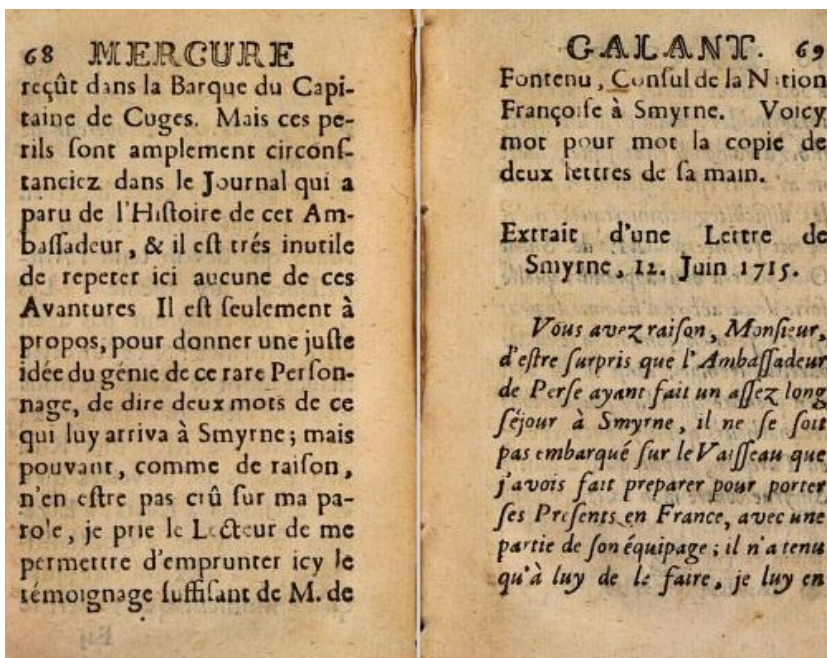 68 MERCURE
reçût dans la Barque du Capi-
taine de Cuges. Mais ces pe-
rils ſont amplement circonſ-
tanciez dans le Journal qui a
paru de l'Hiſtoire de cet Am-
baſſadeur, & il eſt trés inutile
de repeter ici aucune de ces
Avantures Il eſt ſeulement à
propos, pour donner une juſte
idée du génie de ce rare Perſon-
nage, de dire deux mots de ce
qui luy arriva à Smyrne; mais
pouvant, comme de raiſon,
n'en eſtre pas crû ſur ma pa-
role, je prie le Lecteur de me
permettre d'emprunter icy le
témoignage ſuffiſant de M. de
GALANT. 69
Fontenu, Conſul de la Nation
Françoiſe à Smyrne. Voicy
mot pour mot la copie de
deux lettres de ſa main.
Extrait d'une Lettre de
Smyrne, 12. Juin 1715.
Vous avez raiſon, Monſieur,
d'eſtre ſurpris que l'Ambaſſadeur
de Perſe ayant fait un aſſez long
ſéjour à Smyrne, il ne ſe ſoit
pas embarqué ſur le Vaiſſeau que
j'avois fait preparer pour porter
ſes Preſents en France, avec une
partie de ſon équipage; il n'a tenu
qu'à luy de le faire, je luy en